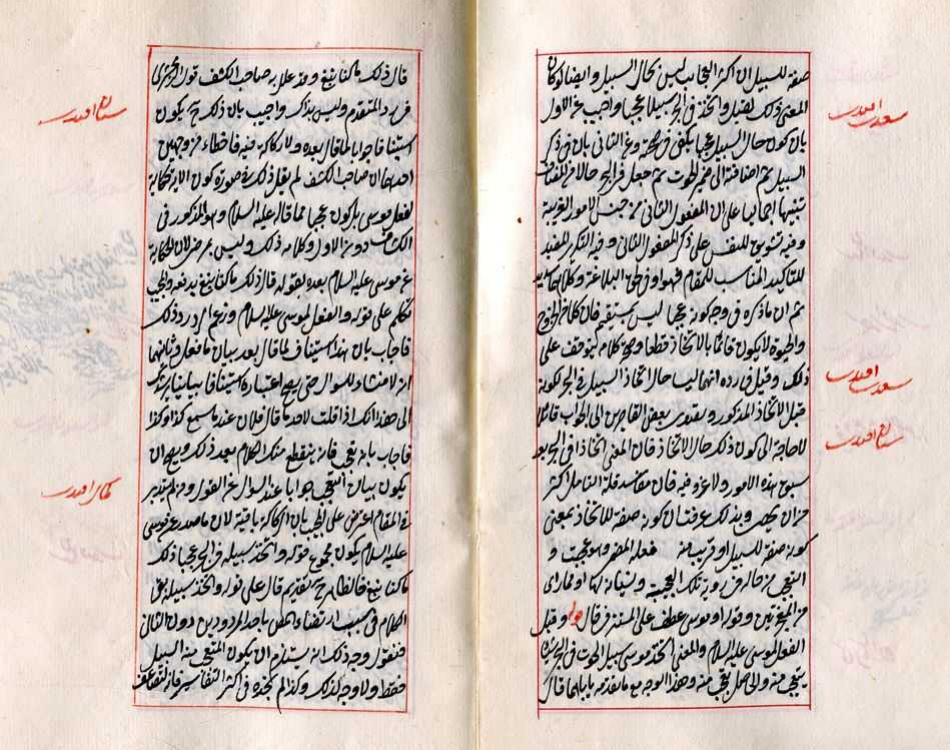 صفة للسبيل ان اكثر العجائب ليس بحال السبيل وايضا لو كان
المعنى ذلك لقيل واتخذ في البحر سبيلا عجبا واجيب عن الاول
بان كون حال السبيل عجبا يكفي في صحته وعن الثاني بان في ذكر
السبيل ثم اضافته الى ضمير الحوت ثم جعل في البحر حالا من المضاف
تنبيها اجماليا على ان المفعول الثاني من جنس الامور الغريبة
وفيه تشويق للنفس على ذكر المفعول الثاني وفيه التكرير المفيد
للتاكيد المناسب للمقام فهو اوفى بحق البلاغة
ثم ان ما ذكره في وجه كونه عجبا ليس بمستقيم فان
والحيوة لا يكون قائما بالاتخاذ قطعا وصحة كلامه يتوقف على
ذلك وقيل في رده انهما ليسا حال اتخاذ السبيل في البحر لكونه
قبل الاتخاذ المذكور وتصدى بعض القاصرين الى الجواب قائلا
لا حاجة الى كون ذلك حال الاتخاذ فان المعنى اتخاذا في البحر
مسبوق بهذه الامور ولا غرو فيه فان مفاسد قلة التأمل اكثر
من ان يحصى وبذلك عرفت ان كونه صفة للاتخاذ بمعنى
كونه صفة للسبيل او قريب منه فعله المضمر وهو عجبت و
التعجب من حاله في رؤية تلك العجيبة ونسيانه لها او مما راى
من المعجزتين وقوله او موسى عطف على المستتر في قال قوله وقيل
الفعل لموسى عليه السلام والمعنى اتخذ موسى سبيل الحوت في البحر
يتعجب منه والحاصل يتعجب منه وهذا الوجه مع ما تقدمه ياباهما قال
سعدى افندى
سعدى افندى
سنان افندى
قال ذلك ما كنا نبغ وقد علل به صاحب الكشف قول الزمخشرى
في رد المتقدم وليس بذاك واجيب بان ذلك ح يكون
استينافا جوابا لما قال بعده ولا ركاكة فيه فاخطاء من وجهين
احدهما ان صاحب الكشف لم يقل ذلك في صورة كون الاية حكاية
لفعل موسى بل كون عجبا مما قال عليه السلام وهو المذكور في
الكشاف دون الاول وكلامه ذلك وليس بمرضي لان الحكاية
عن موسى عليه السلام بعده بقوله قال ذلك ما كنا نبغ يدفعه والمجيب
تكلم على قوله والفعل لموسى عليه السلام وزعم انه رد ذلك
فاجاب بان هذا استيناف لما قال بعد بيان ما فعل وثانيهما
انه لا منشاء للسوال حتى يصح اعتباره استينافا بيانيا
الى هذا انك اذا قلت لاحد ما قال فلان عندما سمع كذا وكذا
فاجاب بانه تعجب فانه ينقطع منك الكلام بعد ذلك ويصح ان
يكون بيان التعجب جوابا عند السوال عن القول ومن لم يتدبر
في المقام اعترض على المجيب بان الركاكة باقية لان ما صدر عن موسى
عليه السلام يكون مجموع قوله واتخذ سبيله في البحر عجبا ذلك
ما كنا نبغ فالظاهر ح تقديم قال على قوله واتخذ سبيله بقى
الكلام في سبب ارتضاء المص باحد المردودين دون الثاني
فنقول وجه ذلك انه يستلزم ان يكون المتعجب منه السبيل
فقط ولا وجه لذلك وكذا لم نجده في اكثر التفاسير
سنان افندى
كمال افندى